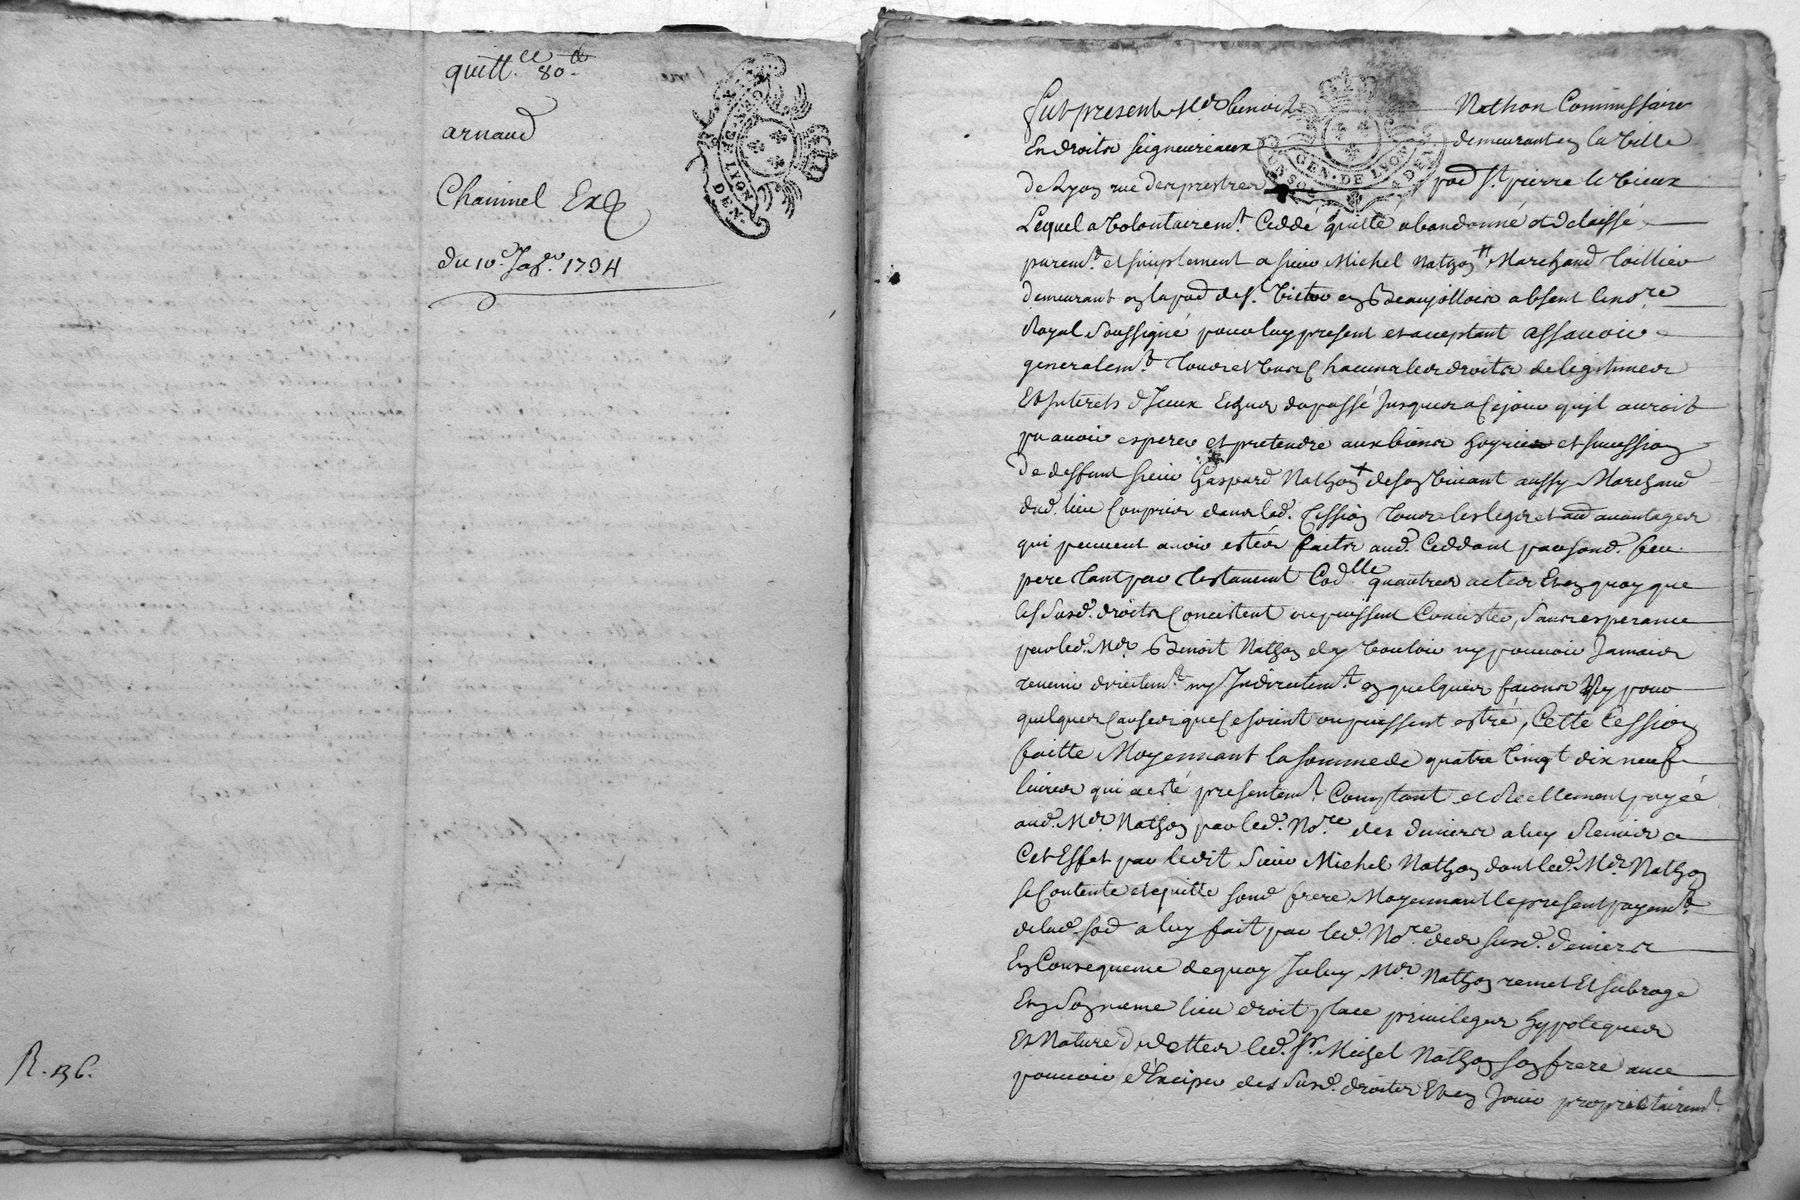 quitt.ce 80.#
arnaud
Chaininel Ex
du 10.e Jan.er 1734
R. 136.
GEN. DE LYON
DEN
Fut present Mr. benoit Nathon Commissaire
En droits seigneuriaux demeurant en la ville
de Lyon rue des prestres parr. St. pierre le vieux
Lequel a volontairemt. Ceddé quitté abandonné et delaissé
puremt. et simplement a sieur Michel Nathon Marchand
demeurant en la parr. de St. victor en Beaujollois absent le nore.
Royal soussigné pour luy present et acceptant assavoir
generalemt. tous et uns chacuns les droits de legitimes
Et Interets d'Iceux Echus du passé Jusques a ce jour qu'il auroit
pu avoir esperer et pretendre aux biens hoyries et succession
de deffunt sieur Gaspard Nathon de son vivant aussy Marchand
dud. lieu Compris dans lad. Cession tous les legs et avantages
qui peuvent avoir estés faits aud. Ceddant par sond. feu
pere tant par testament Codlle. qu'autres actes Et en quoy que
les susd. droits Concistent ou puissent Concister, sans esperance
par led. Mr. Benoit Nathon d'y vouloir ny pouvoir Jamais
revenir directemt. ny Indirectemt. en quelques facons Ny pour
quelques causes que ce soient ou puissent estre, Cette Cession
faitte Moyennant la somme de quatre vingt dix neuf
livres qui a esté presentemt. Comptant et Reellement payée
aud. Mr. Nathon par led. Nore. des deniers a luy Remis a
Cet Effet par ledit sieur Michel Nathon dont led. Mr. Nathon
se Contente et quitte sond. frere Moyennant le present payemt.
de lad. so. a luy fait par led. Nore. des susd. deniers
En Consequence de quoy Iceluy Mr. Nathon remet Et subroge
En son nom lieu droit place privileges hypoteques
Et Nature de dettes led. sr. Michel Nathon son frere avec
pouvoir d'Exciper des susd. droits Et en Jouir proprietairemt.